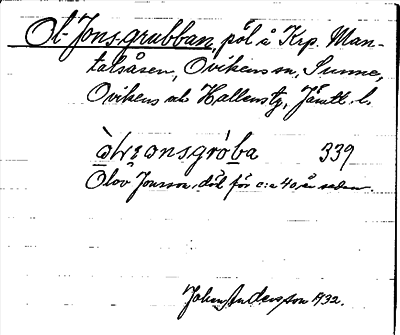 Ol-Jons grubban, pöl å Krp. Man-
talsåsen, Ovikens sn, Sunne,
Ovikens och Hallens tg, Jämtl. l.
339
Olov Jonsson död för c:a 40 år sedan.
John Andersson 1932.